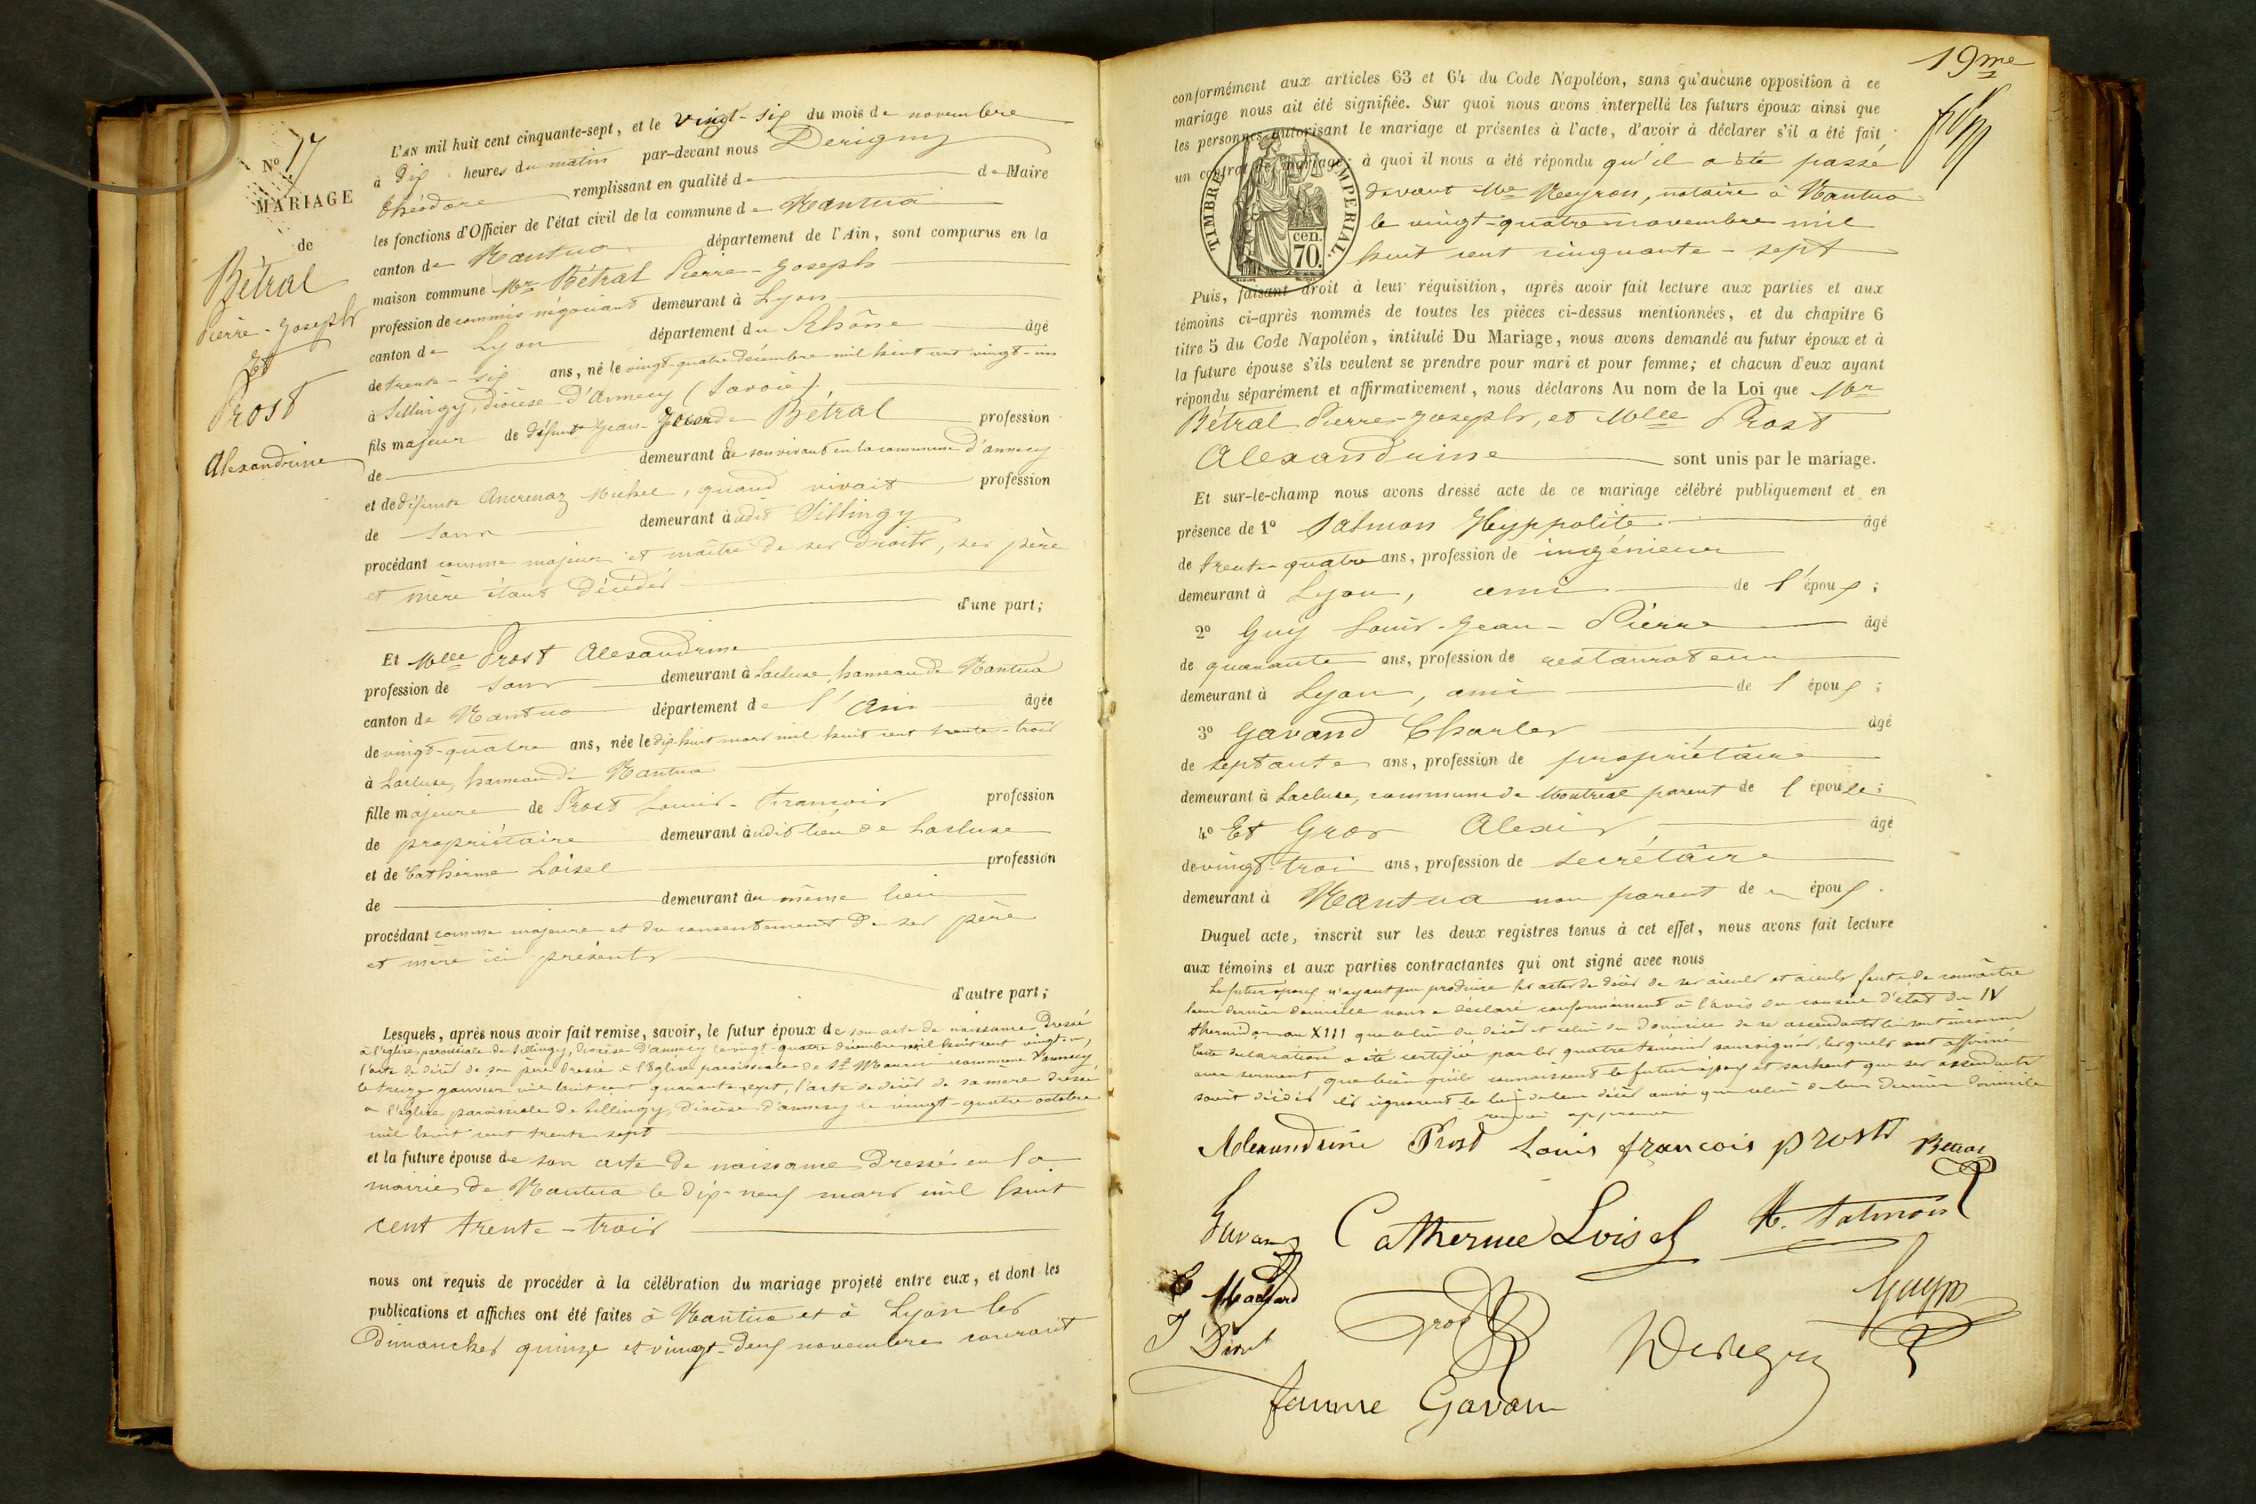 N° 17
MARIAGE
de
Bétral
Pierre-Joseph
Et
Prost
Alexandrine
L'AN mil huit cent cinquante-sept, et le vingt-six du mois de novembre
à dix heures du matin par-devant nous Derigny
Théodore remplissant en qualité de de Maire
les fonctions d'Officier de l'état civil de la commune de Nantua
canton de Nantua département de l'Ain, sont comparus en la
maison commune Mr Bétral Pierre-Joseph
profession de commis négociant demeurant à Lyon
canton de Lyon département du Rhône âgé
de trente-six ans, né le vingt-quatre décembre mil huit cent vingt-un
à Sillingy, diocèse d'Annecy (Savoie)
fils majeur de défunt Jean Bétral profession
de demeurant de son vivant en la commune d'annecy
et de défunte Michel, quand vivait profession
de sans demeurant audit Sillingy
procédant comme majeur et maître de ses droits, ses père
et mère étant décédés
d'une part;
Et Melle Prost Alexandrine
profession de sans demeurant à Lacluse, hameau de Nantua
canton de Nantua département de l'Ain âgée
de vingt-quatre ans, née le dix-huit mars mil huit cent trente-trois
à Lacluse, hameau de Nantua
fille majeure de Prost Louis-François profession
de propriétaire demeurant audit lieu de Lacluse
et de Catherine Loisel profession
de demeurant au même lieu
procédant comme majeure et du consentement de ses père
et mère ici présents
d'autre part;
Lesquels, après nous avoir fait remise, savoir, le futur époux de son acte de naissance dressé
à l'église paroissiale de Sillingy, diocèse d'annecy le vingt-quatre décembre mil huit cent vingt-un,
l'acte de décès de son père dressé à l'Eglise paroissiale de St Maurice commune d'annecy
le treize janvier mil huit cent quarante-sept, l'acte de décès de sa mère dressé
à l'église paroissiale de Sillingy, diocèse d'annecy le vingt-quatre octobre
mil huit cent trente-sept
et la future épouse de son acte de naissance dressé en la
mairie de Nantua le dix-neuf mars mil huit
cent trente-trois
nous ont requis de procéder à la célébration du mariage projeté entre eux, et dont les
publications et affiches ont été faites à Nantua et à Lyon les
dimanches quinze et vingt-deux novembre courant
19me
conformément aux articles 63 et 64 du Code Napoléon, sans qu'aucune opposition à ce
mariage nous ait été signifiée. Sur quoi nous avons interpellé les futurs époux ainsi que
les personnes autorisant le mariage et présentes à l'acte, d'avoir à déclarer s'il a été fait
un contrat de mariage; à quoi il nous a été répondu qu'il a été passé
devant Me Neyron, notaire à Nantua
le vingt-quatre novembre mil
huit cent cinquante-sept
TIMBRE IMPERIAL.
cen.
70.
Puis, faisant droit à leur réquisition, après avoir fait lecture aux parties et aux
témoins ci-après nommés de toutes les pièces ci-dessus mentionnées, et du chapitre 6
titre 5 du Code Napoléon, intitulé Du Mariage, nous avons demandé au futur époux et à
la future épouse s'ils veulent se prendre pour mari et pour femme; et chacun d'eux ayant
répondu séparément et affirmativement, nous déclarons Au nom de la Loi que Mr
Bétral Pierre-Joseph, et Melle Prost
Alexandrine sont unis par le mariage.
Et sur-le-champ nous avons dressé acte de ce mariage célébré publiquement et en
présence de 1° Salmon Hyppolite âgé
de trente-quatre ans, profession de ingénieur
demeurant à Lyon, ami de l'époux;
2° Guy Louis-Jean-Pierre âgé
de quarante ans, profession de restaurateur
demeurant à Lyon, ami de l époux;
3° Gavand Charles âgé
de septante ans, profession de propriétaire
demeurant à Lacluse, commune de Montréal parent de l épouse;
4° Et Gros Alexis, âgé
de vingt-trois ans, profession de secrétaire
demeurant à Nantua non parent des époux.
Duquel acte, inscrit sur les deux registres tenus à cet effet, nous avons fait lecture
aux témoins et aux parties contractantes qui ont signé avec nous
Le futur époux n'ayant pu produire les actes de décès de ses aïeuls et aïeules faute de connaître
leur dernier domicile nous a déclaré conformément à l'avis du conseil d'état du IV
thermidor an XIII que le lieu du décès et celui du domicile de ses ascendants lui sont inconnus
Cette déclaration a été certifiée par les quatre témoins soussignés, lesquels ont affirmé
avec serment, que bien qu'ils connaissent le futur époux et sachent que ses ascendants
soient décédés, ils ignorent le lieu de leur décès ainsi que celui de leur dernier domicile
renvoi approuvé
Alexandrine Prost Louis françois prost Bétral
Gavand Catherine Loisel H. Salmon
Guy
Gros Derigny
femme Gavan